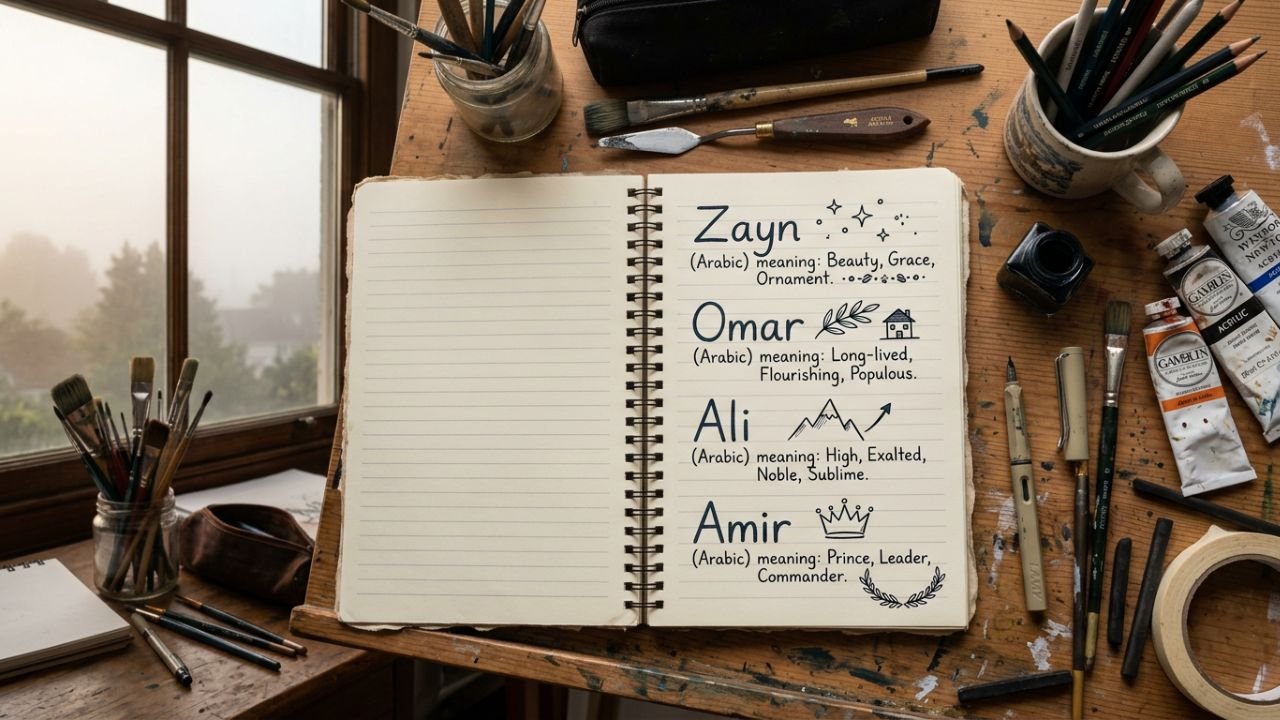 Zayn
(Arabic) meaning: Beauty, Grace,
Ornament.
Omar
(Arabic) meaning: Long-lived,
Flourishing, Populous.
Ali
(Arabic) meaning: High, Exalted,
Noble, Sublime.
Amir
(Arabic) meaning: Prince, Leader,
Commander.
GAMBLIN
ACRYLIC
GAMBLIN
LAMY